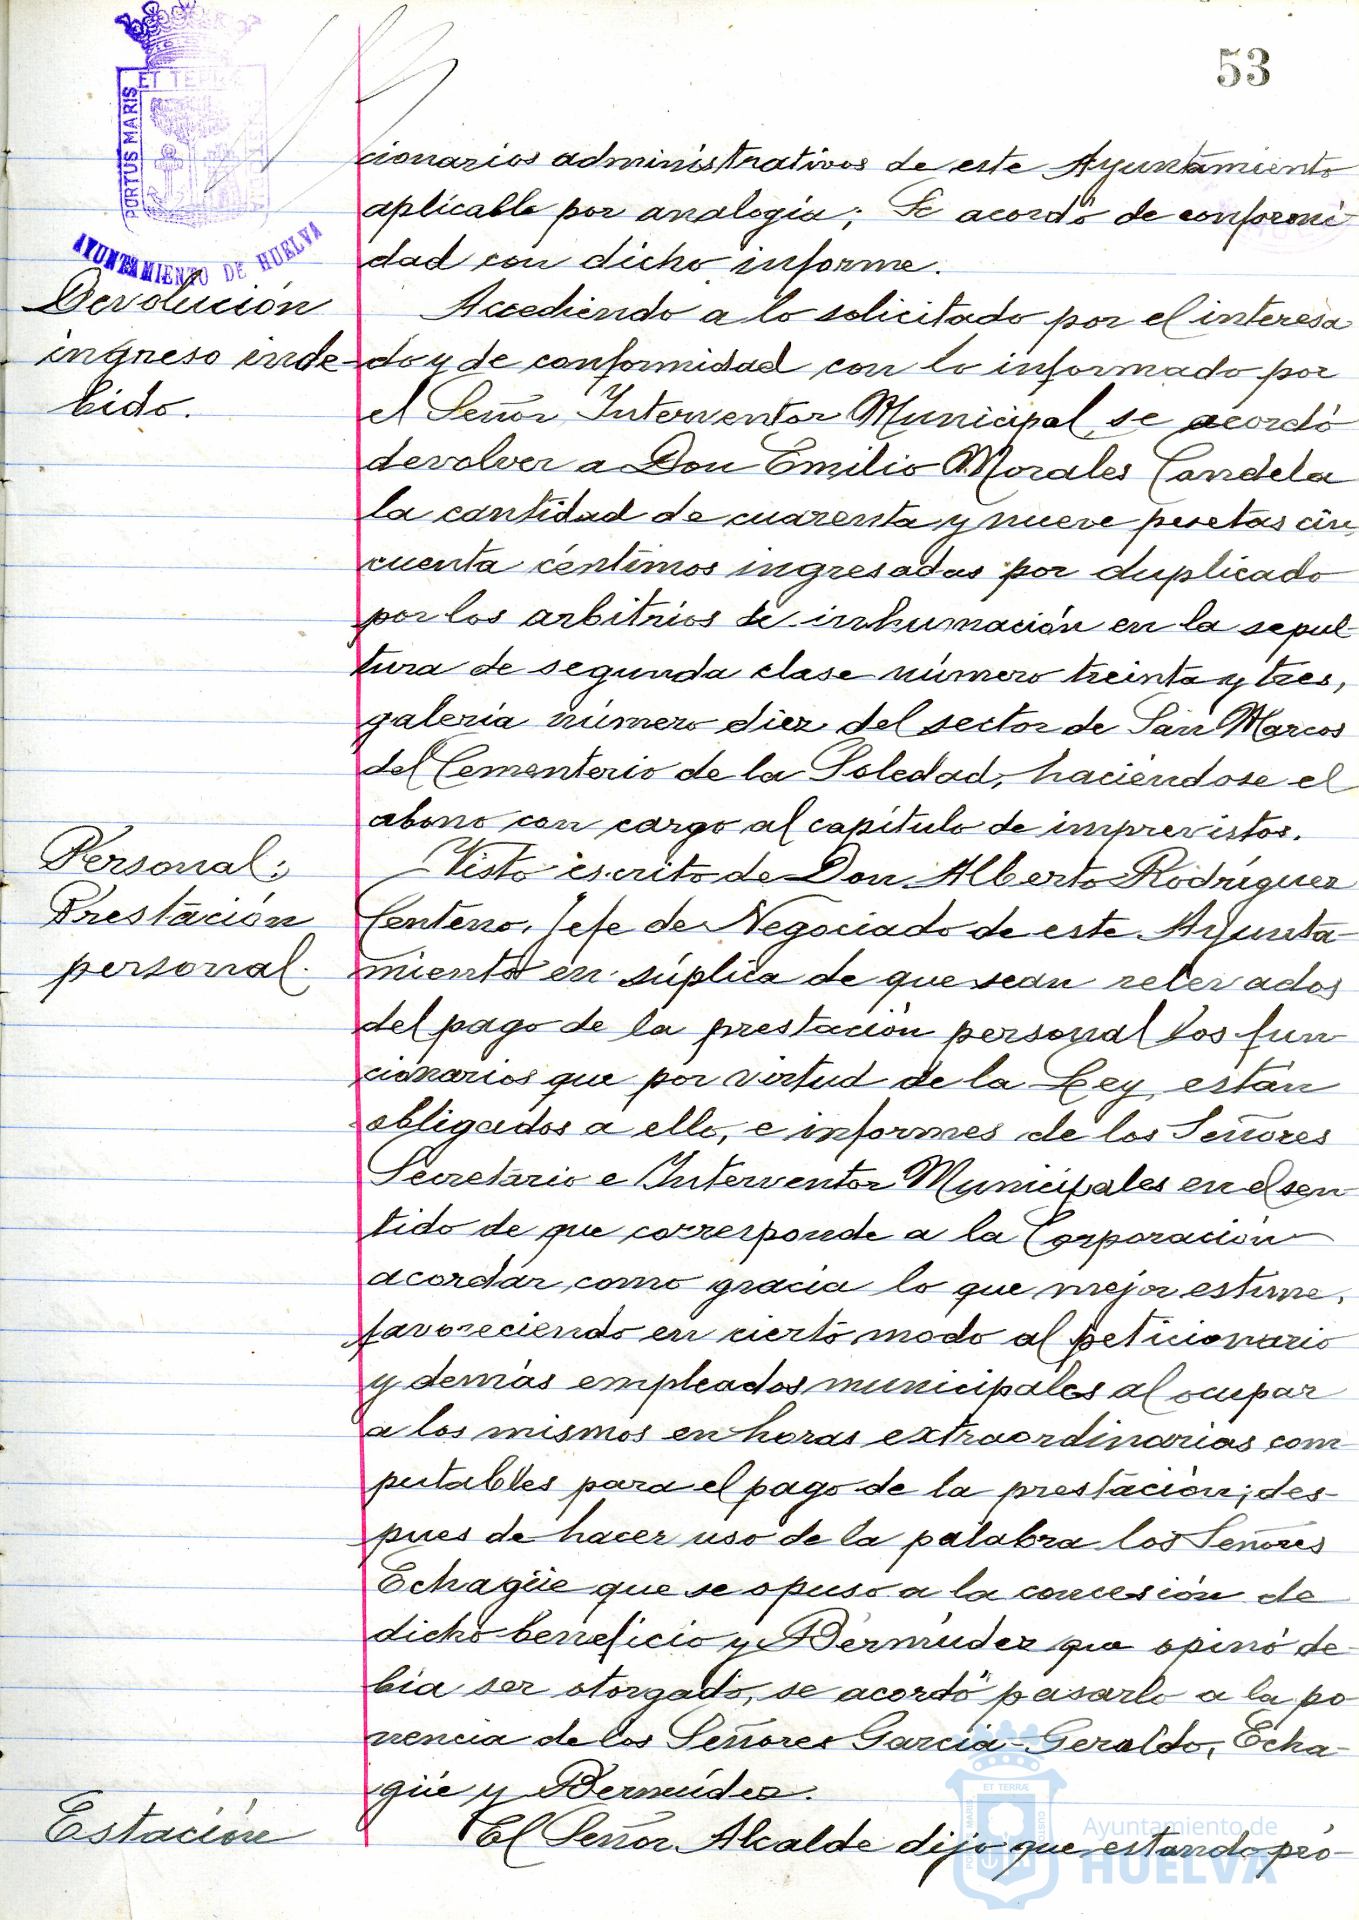 53
ET TERRÆ
PORTUS MARIS
AYUNTAMIENTO DE HUELVA
cionarios administrativos de este Ayuntamiento
aplicable por analogía; Se acordó de conformi-
dad con dicho informe.
Devolución
ingreso inde-
bido.
Accediendo a lo solicitado por el interesa
do y de conformidad con lo informado por
el Señor Interventor Municipal, se acordó
devolver a Don Emilio Morales Candela
la cantidad de cuarenta y nueve pesetas cin
cuenta céntimos ingresadas por duplicado
por los arbitrios de inhumación en la sepul-
tura de segunda clase número treinta y tres,
galería número diez del sector de San Marcos
del Cementerio de la Soledad, haciéndose el
abono con cargo al capítulo de imprevistos.
Personal:
Prestación
personal.
Visto escrito de Don Alberto Rodríguez
Centeno, Jefe de Negociado de este Ayunta-
miento en súplica de que sean relevados
del pago de la prestación personal los fun
cionarios que por virtud de la Ley, están
obligados a ello, e informes de los Señores
Secretario e Interventor Municipales en el sen
tido de que corresponde a la Corporación
acordar como gracia lo que mejor estime,
favoreciendo en cierto modo al peticionario
y demás empleados municipales al ocupar
a los mismos en horas extraordinarias com-
putables para el pago de la prestación; des-
pues de hacer uso de la palabra los Señores
Echagüe que se opuso a la concesión de
dicho beneficio y Bermúdez que opinó de-
bía ser otorgado, se acordó pasarlo a la po
nencia de los Señores García-Geraldo, Echa-
güe y Bermúdez.
Estación
El Señor Alcalde dijo que estando pró-
ET TERRÆ
PORTUS MARIS
CUSTODIA
Ayuntamiento de
HUELVA